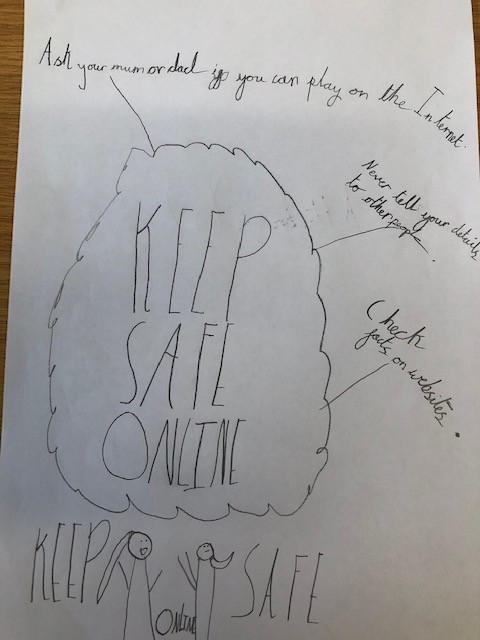 Ask your mum or dad if you can play on the Internet.
Never tell your details
to other people.
Check
facts on websites.
KEEP
SAFE
ONLINE
KEEP ONLINE SAFE